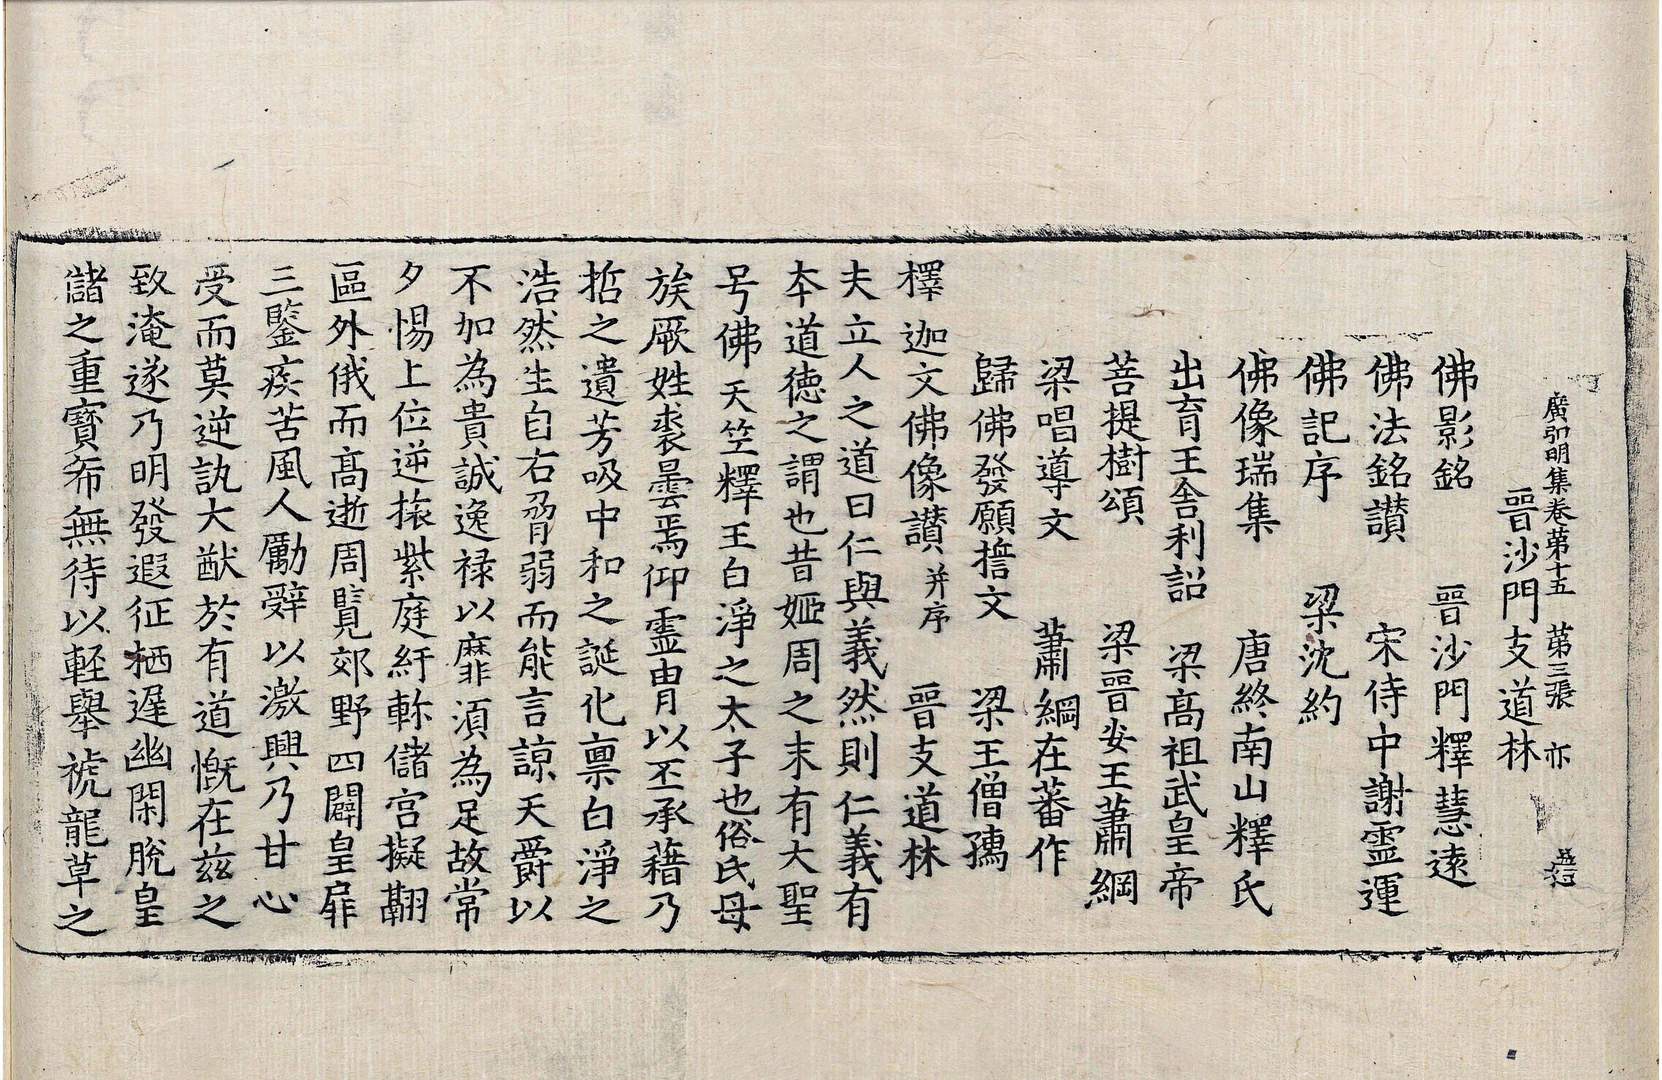 廣弘明集卷第十五　第三張　亦
晉沙門支道林
佛影銘　　晉沙門釋慧遠
佛法銘讃　　宋侍中謝靈運
佛記序　　梁沈約
佛像瑞集　　唐終南山釋氏
出育王舍利詔　梁髙祖武皇帝
菩提樹頌　　梁晉安王蕭綱
梁唱導文　　蕭綱在蕃作
歸佛發願誓文　　梁王僧孺
釋迦文佛像讃并序　晉支道林
夫立人之道曰仁與義然則仁義有
本道德之謂也昔姬周之末有大聖
号佛天竺釋王白淨之太子也俗氏母
族厥姓裘曇焉仰靈胄以丕承藉乃
哲之遺芳吸中和之誕化禀白淨之
浩然生自右脅弱而能言諒天爵以
不加為貴誠逸祿以靡須為足故常
夕惕上位逆旅紫庭紆軫儲宫擬翮
區外俄而髙逝周覽郊野四闢皇扉
三鑒疾苦風人勵辭以激興乃甘心
受而莫逆訊大猷於有道慨在茲之
致淹遂乃明發遐征栖遲幽閑脫皇
儲之重寶希無待以輕舉褫龍草之